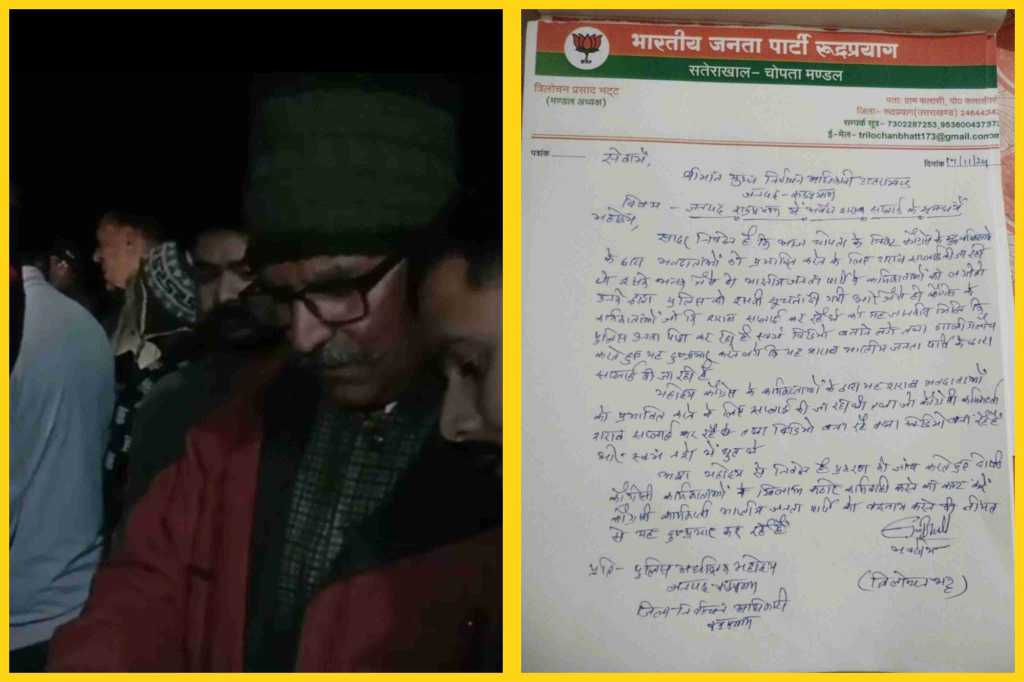 भारतीय जनता पार्टी रूद्रप्रयाग
सतेराखाल- चोपता मण्डल
त्रिलोचन प्रसाद भट्ट
(मण्डल अध्यक्ष)
पता: ग्राम
जिला- रूद्रप्रयाग(उत्तराखण्ड)
सम्पर्क सूत्र- 7302287253,
ई-मेल- trilochanbhatt173@gmail.com
पत्रांक
दिनांक
सेवामें,
श्रीमान मुख्य निर्वाचन अधिकारी उत्तराखण्ड
जनपद - रूद्रप्रयाग
विषय - जनपद रूद्रप्रयाग में अवैध शराब सप्लाई के सम्बन्ध में
महोदय,
सादर निवेदन है कि आज चोपता के निकट कांग्रेस के
के द्वारा मतदाताओं को प्रभावित करने के लिए शराब सप्लाई की जा रही
थी इसकी भनक जैसे ही भारतीय जनता पार्टी के कार्यकर्ताओं को लगी तो
उनके द्वारा पुलिस को इसकी सूचना दी गयी और जैसे ही कांग्रेस के
कार्यकर्ताओं जो कि शराब सप्लाई कर रहे थे को यह कि
पुलिस उनका पीछा कर रही है स्वयं विडियो बनाने लगे तथा गाली गलौच
करते हुए यह दुष्प्रचार करने लगे कि यह शराब भारतीय जनता पार्टी के द्वारा
सप्लाई की जा रही है
महोदय कांग्रेस के कार्यकर्ताओं के द्वारा यह शराब मतदाताओं
को प्रभावित करने के लिए सप्लाई की जा रही थी तथा जो कांग्रेसी कार्यकर्ता
शराब सप्लाई कर रहे थे तथा विडियो बना रहे
और स्वयं नशे में धुत थे
अतः महोदय से निवेदन है प्रकरण की जांच करते हुए दोषी
कांग्रेसी कार्यकर्ताओं के खिलाफ कठोर कार्यवाही करने का कष्ट करें
कांग्रेसी कार्यकर्ता भारतीय जनता पार्टी को बदनाम करने की नीयत
से यह दुष्प्रचार कर रहे हैं
भवदीय
(त्रिलोचन भट्ट)
प्रति- पुलिस अधीक्षक महोदय
जनपद रूद्रप्रयाग
जिला निर्वाचन अधिकारी
रूद्रप्रयाग